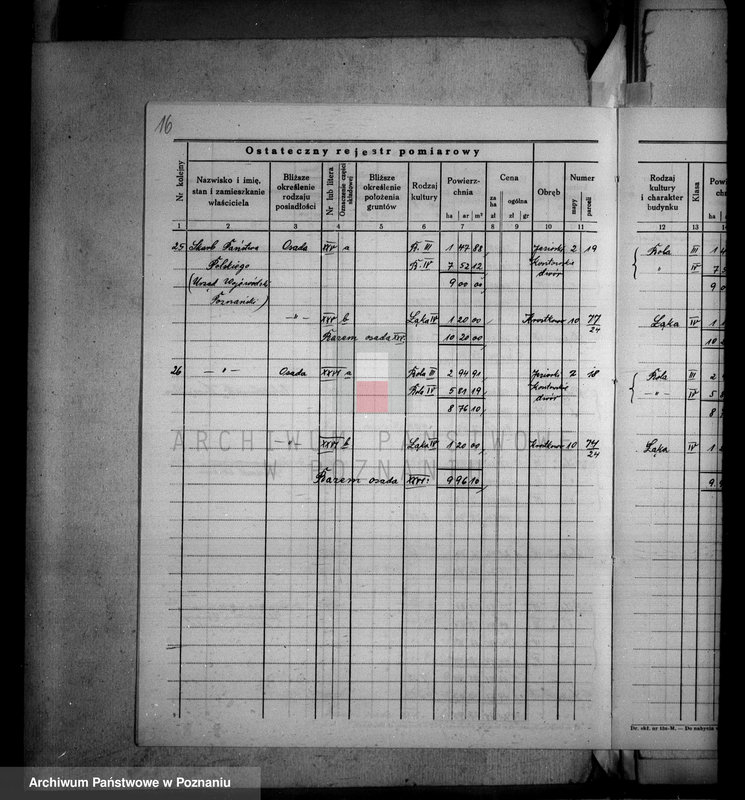 16
Ostateczny rejestr pomiarowy
Nr kolejny
Nazwisko i imię, stan i zamieszkanie właściciela
Bliższe określenie rodzaju posiadłości
Nr lub litera
Oznaczenie części składowej
Bliższe określenie położenia gruntów
Rodzaj kultury
Powierzchnia
ha ar m²
Cena
za ha zł
ogólna zł gr
Obręb
Numer
mapy parceli
Rodzaj kultury i charakter budynku
Klasa
1 2 3 4 5 6 7 8 9 10 11 12 13 14
25 Skarb Państwa Osada XXV a R. III 1 47 88 Jeziorki 2 19 Rola III
Polskiego R. IV 7 52 12 dwór " IV
(Urząd Wojewódzki 9 00 00
Poznański)
" XXV b Łąka IV 1 20 00 10 77/24 Łąka IV
Razem osada XXV: 10 20 00
26 — " — Osada XXVI a Rola III 2 94 91 Jeziorki 2 18 Rola III
Rola IV 5 81 19 dwór — " — IV
8 76 10
— " — XXVI b Łąka IV 1 20 00 10 74/24 Łąka IV
Razem osada XXVI: 9 96 10
ARCHIWUM PAŃSTWOWE
W POZNANIU
Dr. skł. nr 13a-M. — Do nabycia
Archiwum Państwowe w Poznaniu